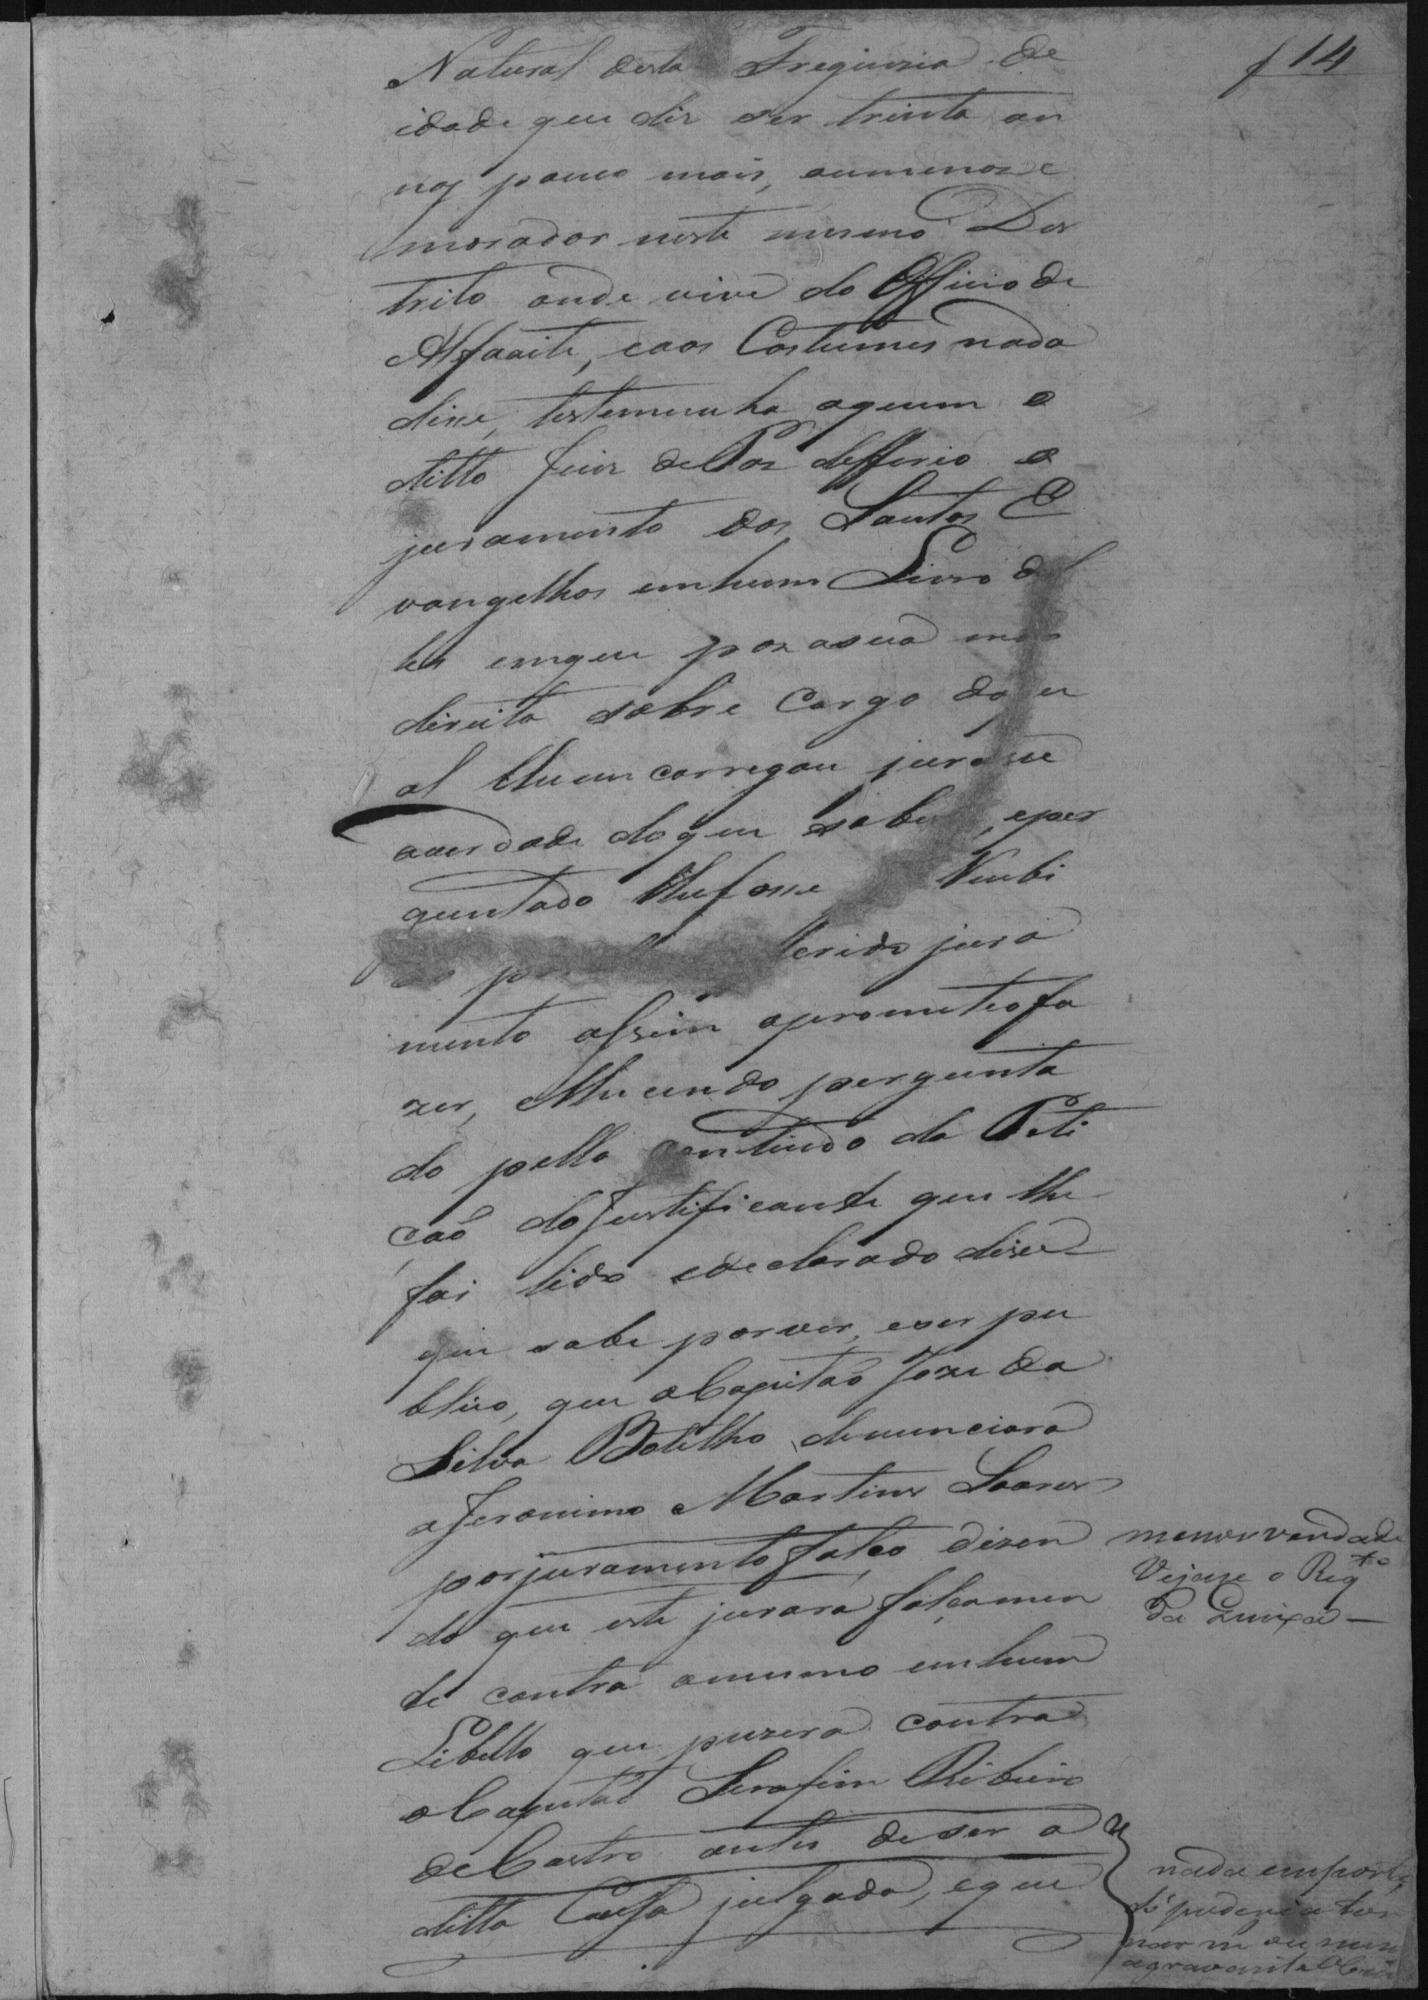 f 14
Natural desta Freguezia de
idade que diz ser trinta an
nos pouco mais, oumenos e
morador neste mesmo Des
trito onde vive do Officio de
Alfaaite, eaos Costumes nada
dice, testemunha aquem o
ditto Juiz dePaz defferio o
juramento dos Santos E
vangelhos emhum Livro del
les emque poz asua mão
direita sobre Cargo doqu
al lheemcarregou jurasse
averdade doque soubesse, eper
guntado lhefosse Recebi
do por elle rido jura
mento afsim oprometeofa
zer, elhe sendo pergunta
do pello contiudo da Peti
çaõ doJustificante que lhe
foi lida edeclarado dice
que sabe porver, eser pu
blico, que oCapitaõ Joze da
Silva Botelho denunciara
aJeronimo Martins Soares
porjuramento falço, dizen
do que este jurara falçamen
te contra omesmo emhum
Libello que puzera contra
oCapitaõ Serafim Ribeiro
deCastro antes deser a
ditta Caufa julgada, eque
menos verdade
Vejase o Reqto
da Queixa —
nada emporta
só puderia tor
nar m ou men
agravante